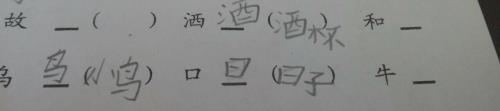 故 _ ( ) 洒 酒 (酒杯) 和 _
鸟 (小鸟) 口 日 (日子) 牛 _